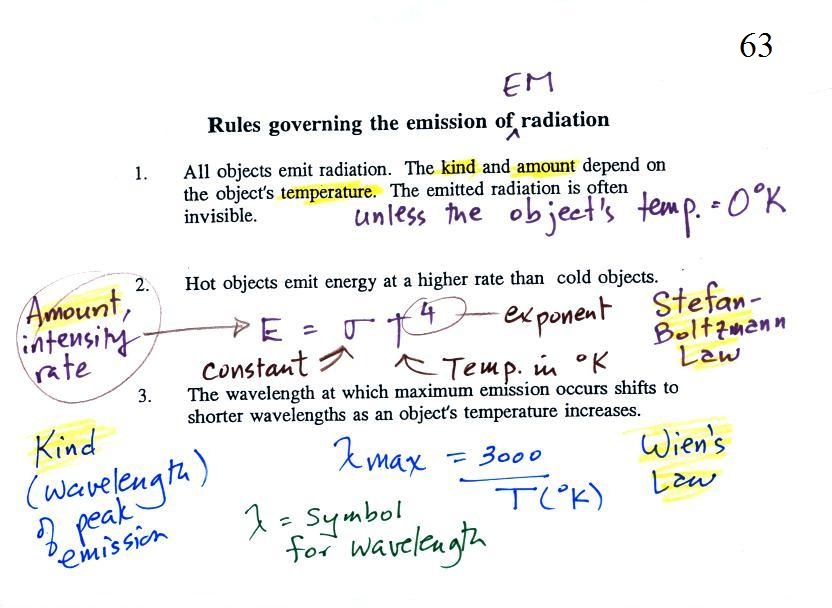 63
EM
Rules governing the emission of ^ radiation
1. All objects emit radiation. The kind and amount depend on
the object's temperature. The emitted radiation is often
invisible. unless the object's temp. = 0°K
2. Hot objects emit energy at a higher rate than cold objects.
Amount,
intensity
rate
E = σ T⁴
exponent
constant
Temp. in °K
Stefan-
Boltzmann
Law
3. The wavelength at which maximum emission occurs shifts to
shorter wavelengths as an object's temperature increases.
Kind
(wavelength)
of peak
emission
λmax = 3000
T(°K)
Wien's
Law
λ = symbol
for wavelength